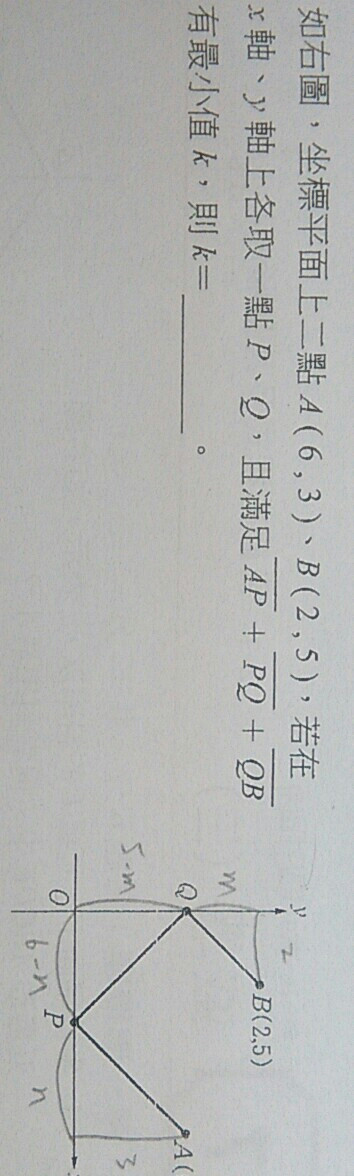 如右圖，坐標平面上二點 A(6,3)、B(2,5)，若在
x 軸、y 軸上各取一點 P、Q，且滿足 AP + PQ + QB
有最小值 k，則 k= ______ 。
y
2
B(2,5)
m
Q
5-m
A(
3
O
P
6-n
n